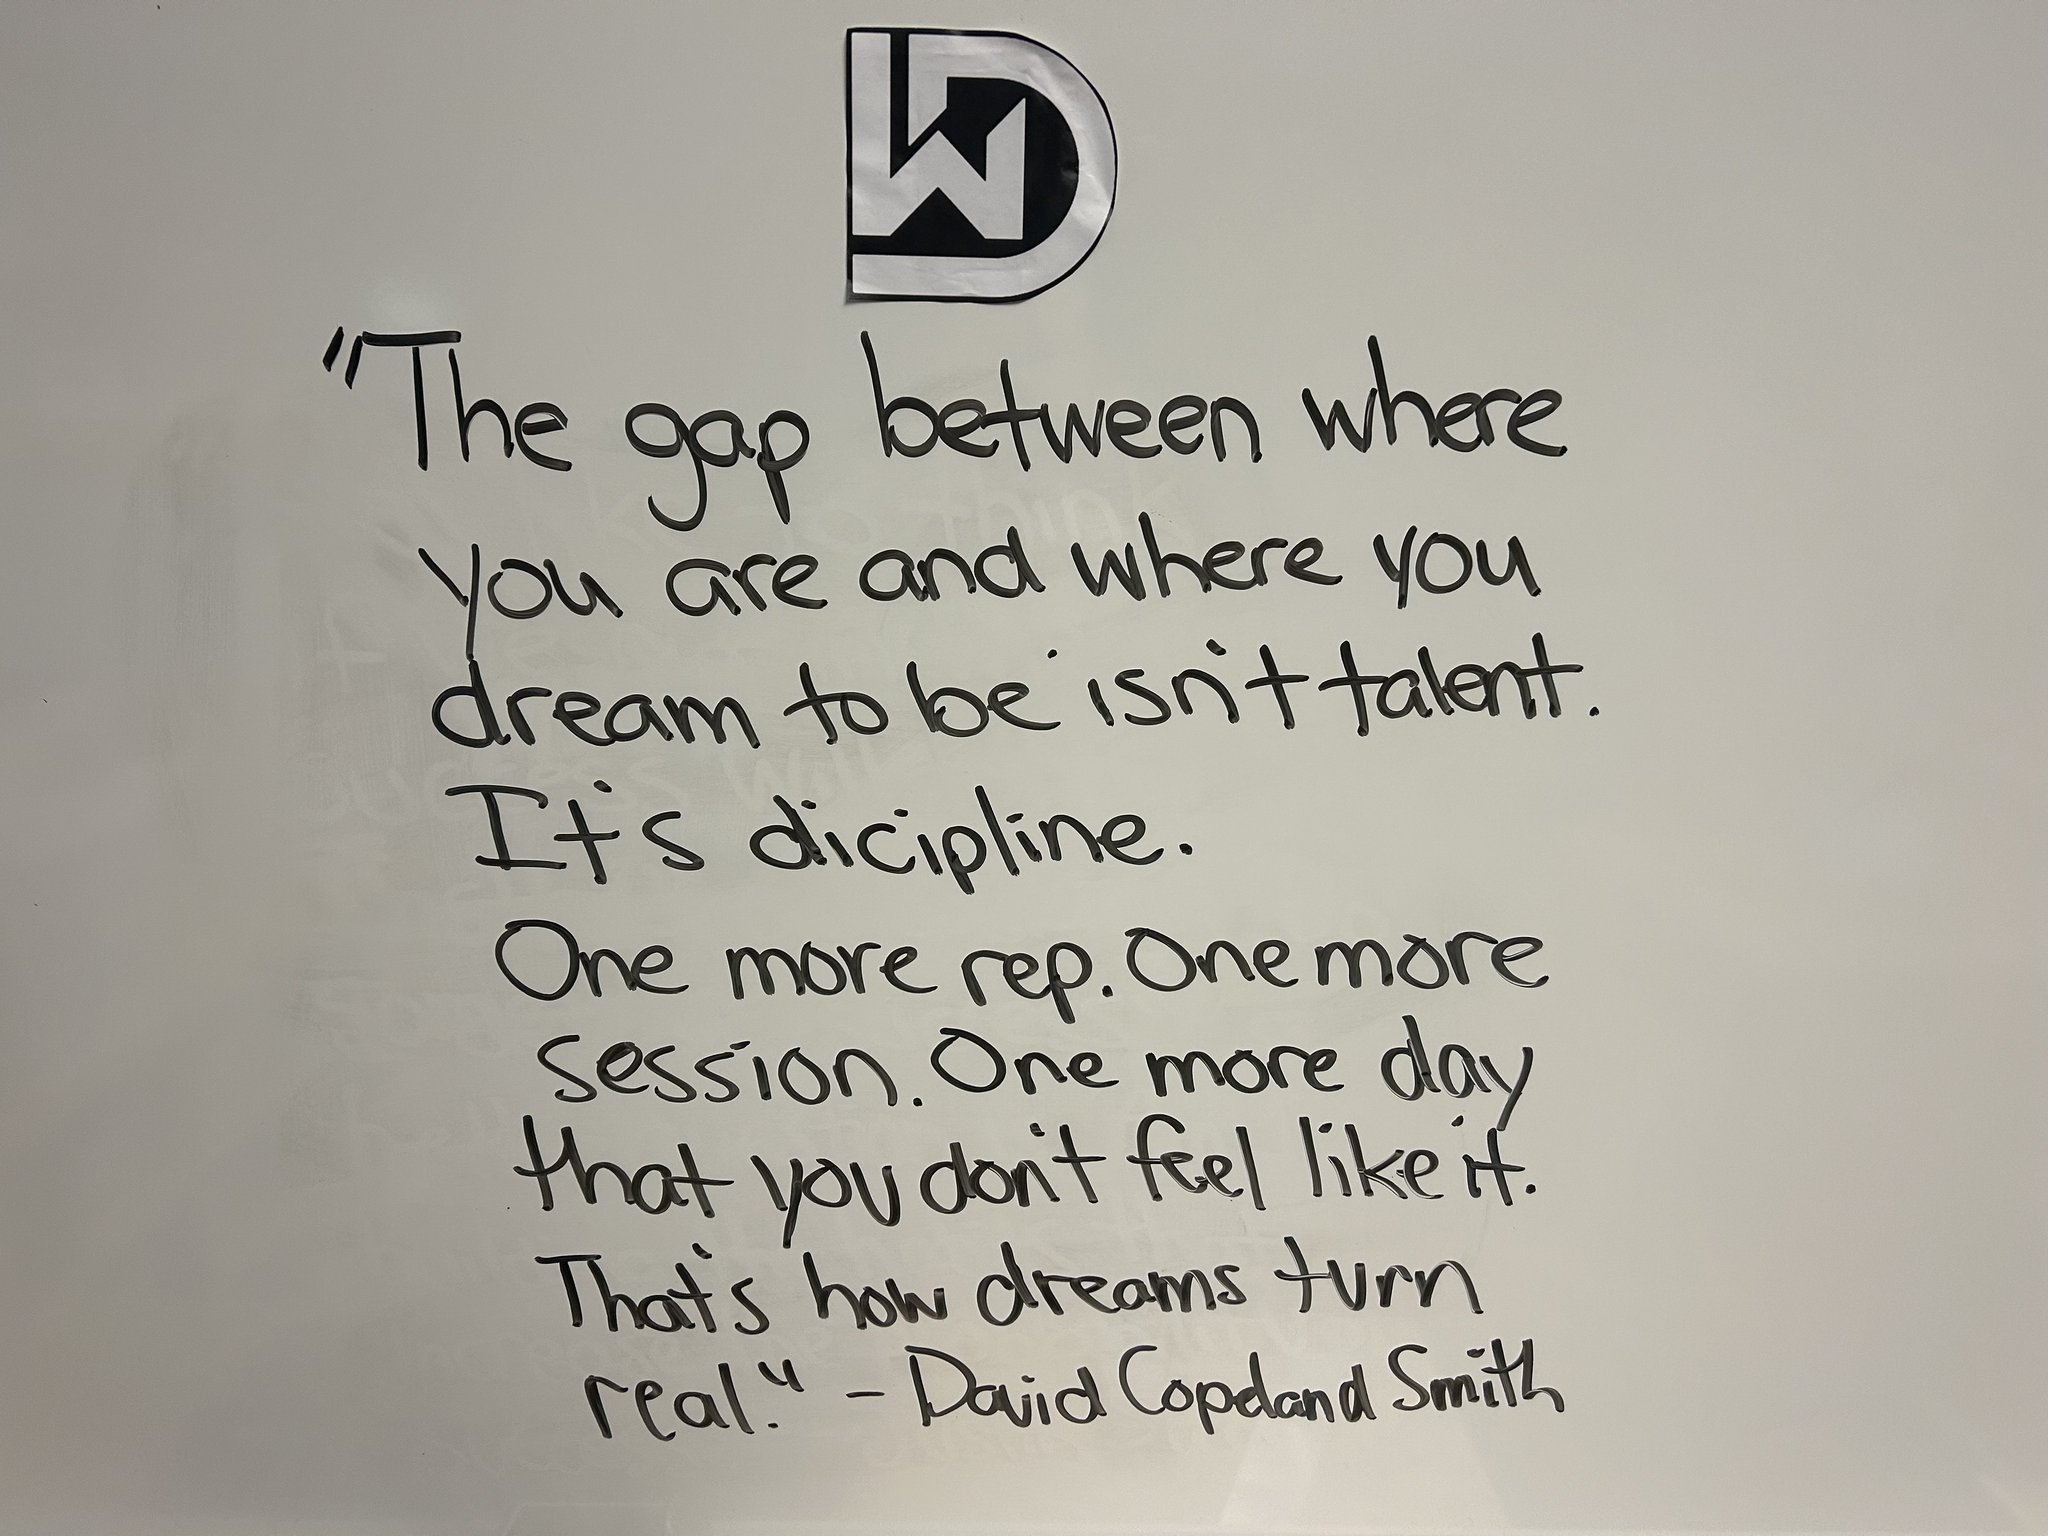 "The gap between where
you are and where you
dream to be isn't talent.
It's dicipline.
One more rep. One more
session. One more day
that you don't feel like it.
That's how dreams turn
real." - David Copeland Smith